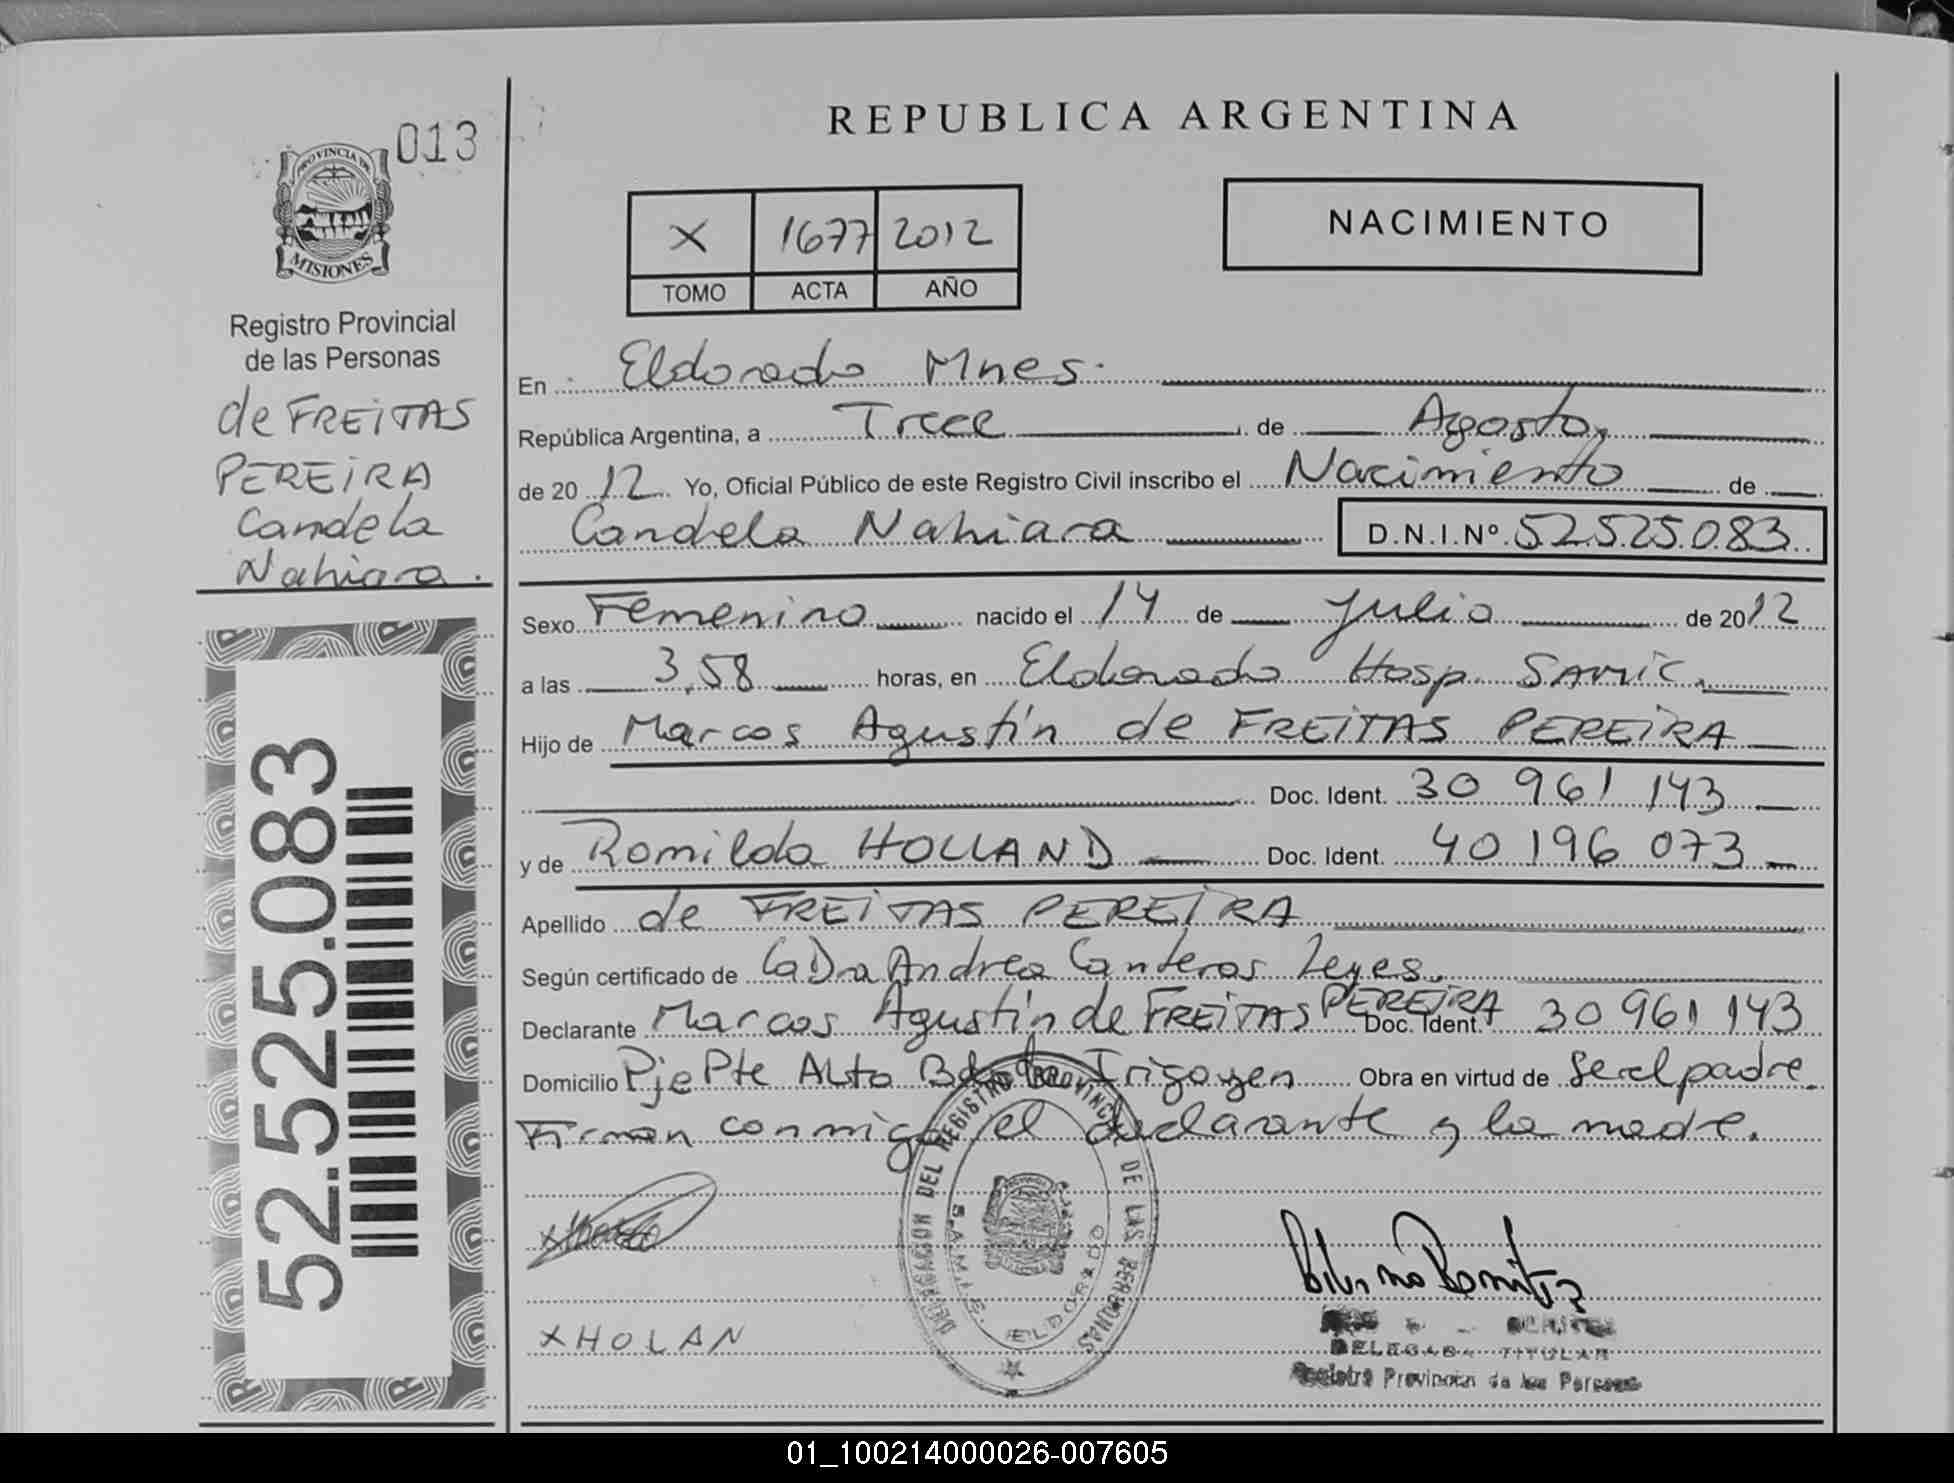 013
PROVINCIA DE
MISIONES
Registro Provincial
de las Personas
de FREITAS
PEREIRA
Candela
Nahiara.
52.525.083
REPUBLICA ARGENTINA
X 1677 2012
TOMO ACTA AÑO
NACIMIENTO
En Eldorado Mnes.
República Argentina, a Trece de Agosto,
de 20 12 Yo, Oficial Público de este Registro Civil inscribo el Nacimiento de
Candela Nahiara D.N.I.Nº 52.525.083
Sexo Femenino nacido el 14 de Julio de 2012
a las 3,58 horas, en Eldorado Hosp. SAMIC.
Hijo de Marcos Agustín de FREITAS PEREIRA
Doc. Ident. 30 961 143
y de Romilda HOLLAND Doc. Ident. 40 196 073
Apellido de FREITAS PEREIRA
Según certificado de la Dra Andrea Canteros Leyes.
Declarante Marcos Agustín de FREITAS PEREIRA Doc. Ident. 30 961 143
Domicilio Pje Pte Alto Bdo de Irigoyen Obra en virtud de Ser el padre.
Firman conmigo el declarante y la madre.
DELEGACION DEL REGISTRO PROVINCIAL DE LAS PERSONAS
S.A.M.I.C. ELDORADO
X HOLAN
BENITEZ
DELEGADA TITULAR
Registro Provincial de las Personas
01_100214000026-007605